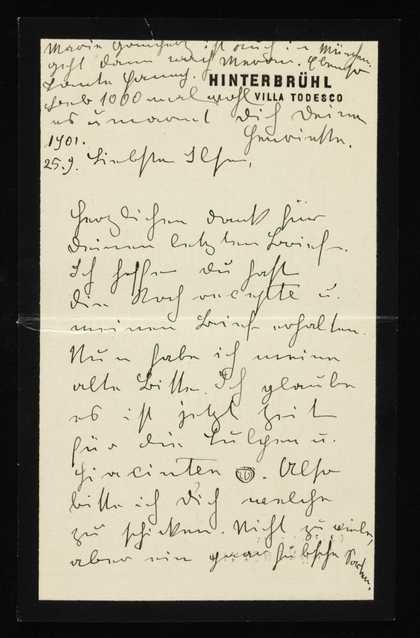 Marie Gomperz ist auch in München.
geht dann nach Meran. Ebenso
Tante Fanny.
HINTERBRÜHL
VILLA TODESCO
Leb 1000 mal wohl
es umarmt Dich Deine
Henriette.
1901.
25.9. Liebste Ilse,
herzlichen dank für
Deinen letzten Brief.
Ich hoffe du hast
die Kochrecepte u.
meinen Brief erhalten.
Nun habe ich meine
alte Bitte. Ich glaube
es ist jetzt Zeit
für die Tulpen u.
Hiacinten. Also
bitte ich Dich welche
zu schicken. Nicht zu viele,
aber ein paar hübsche